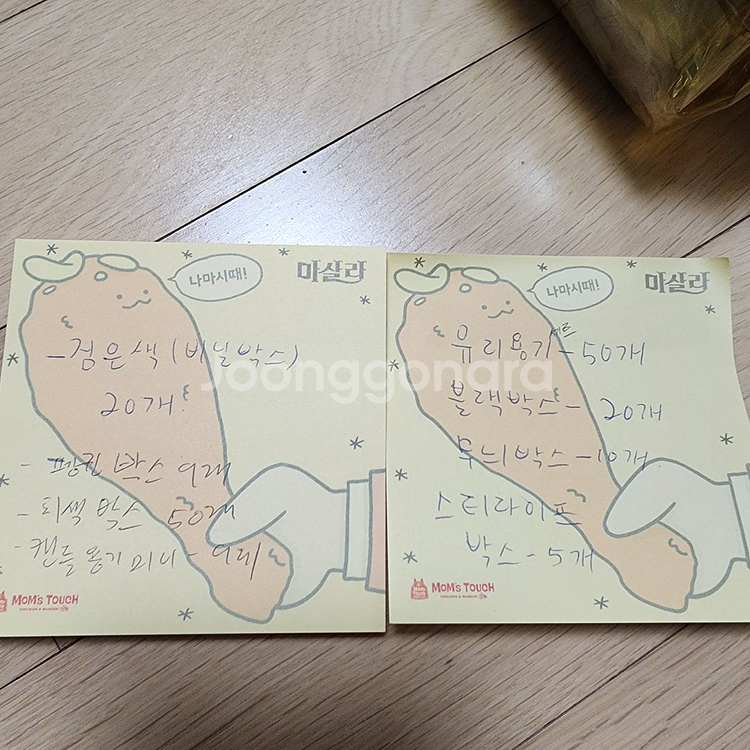 나마시때!
마살라
-검은색(비닐박스)
20개
박스 9개
- 회색 박스 50개
- 캔들용기 미니 - 9개
MOM's TOUCH
CHICKEN & BURGER
나마시때!
마살라
세트
유리용기 - 50개
블랙박스 - 20개
무늬박스 - 10개
스티라이프
박스 - 5개
MOM's TOUCH
CHICKEN & BURGER
Joonggonara